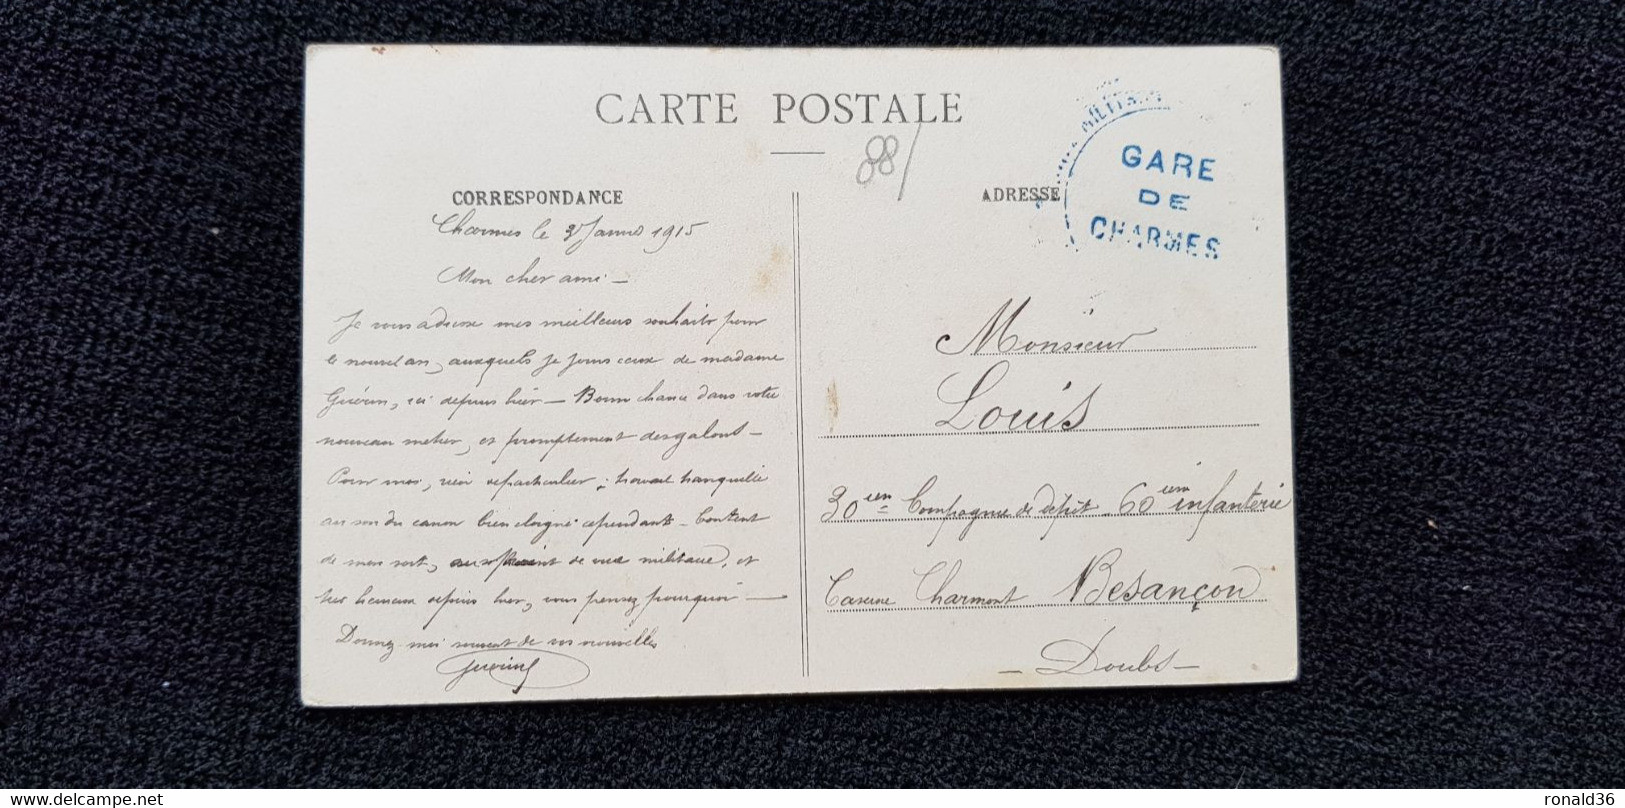 CARTE POSTALE
88/
CORRESPONDANCE
Charmes le 3 Janvr 1915
Mon cher ami –
Je vous adresse mes meilleurs souhaits pour
le nouvel an, auxquels je joins ceux de madame
Guérin, ici depuis hier – Bonne chance dans votre
nouveau métier, et promptement des galons –
Pour moi, rien de particulier ; travail tranquille
au son du canon bien éloigné cependant – Content
de mon sort, au point de vue militaire, et
très heureux depuis hier, vous pensez pourquoi –
Donnez-moi souvent de vos nouvelles
Guérin
ADRESSE
MILITA
GARE
DE
CHARMES
Monsieur
Louis
30ième Compagnie de dépôt – 60ième infanterie
Caserne Charmont Besançon
– Doubs –
www.delcampe.net
ronald36